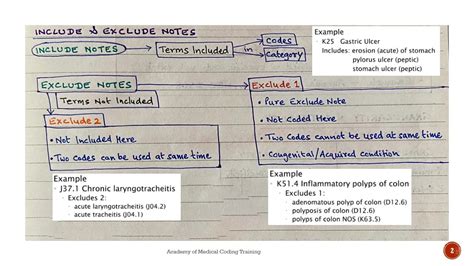 INCLUDE & EXCLUDE NOTES
INCLUDE NOTES → Terms Included in Codes
Category
Example
• K25 Gastric Ulcer
Includes: erosion (acute) of stomach
pylorus ulcer (peptic)
stomach ulcer (peptic)
EXCLUDE NOTES
Terms Not Included
Exclude 2
• Not Included Here
• Two Codes can be used at same time
Exclude 1
• Pure Exclude Note
• Not Coded Here
• Two Codes cannot be used at same time
• Congenital/Acquired Condition
Example
• J37.1 Chronic laryngotracheitis
• Excludes 2:
acute laryngotracheitis (J04.2)
acute tracheitis (J04.1)
Example
• K51.4 Inflammatory polyps of colon
• Excludes 1:
adenomatous polyp of colon (D12.6)
polyposis of colon (D12.6)
polyps of colon NOS (K63.5)
Academy of Medical Coding Training
2